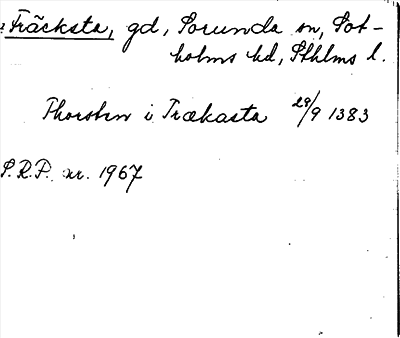 Träcksta, gd, Sorunda sn, Sot-
holms hd, Sthlms l.
Thorsten i Trækasta 29/9 1383
S.R.P. nr. 1967